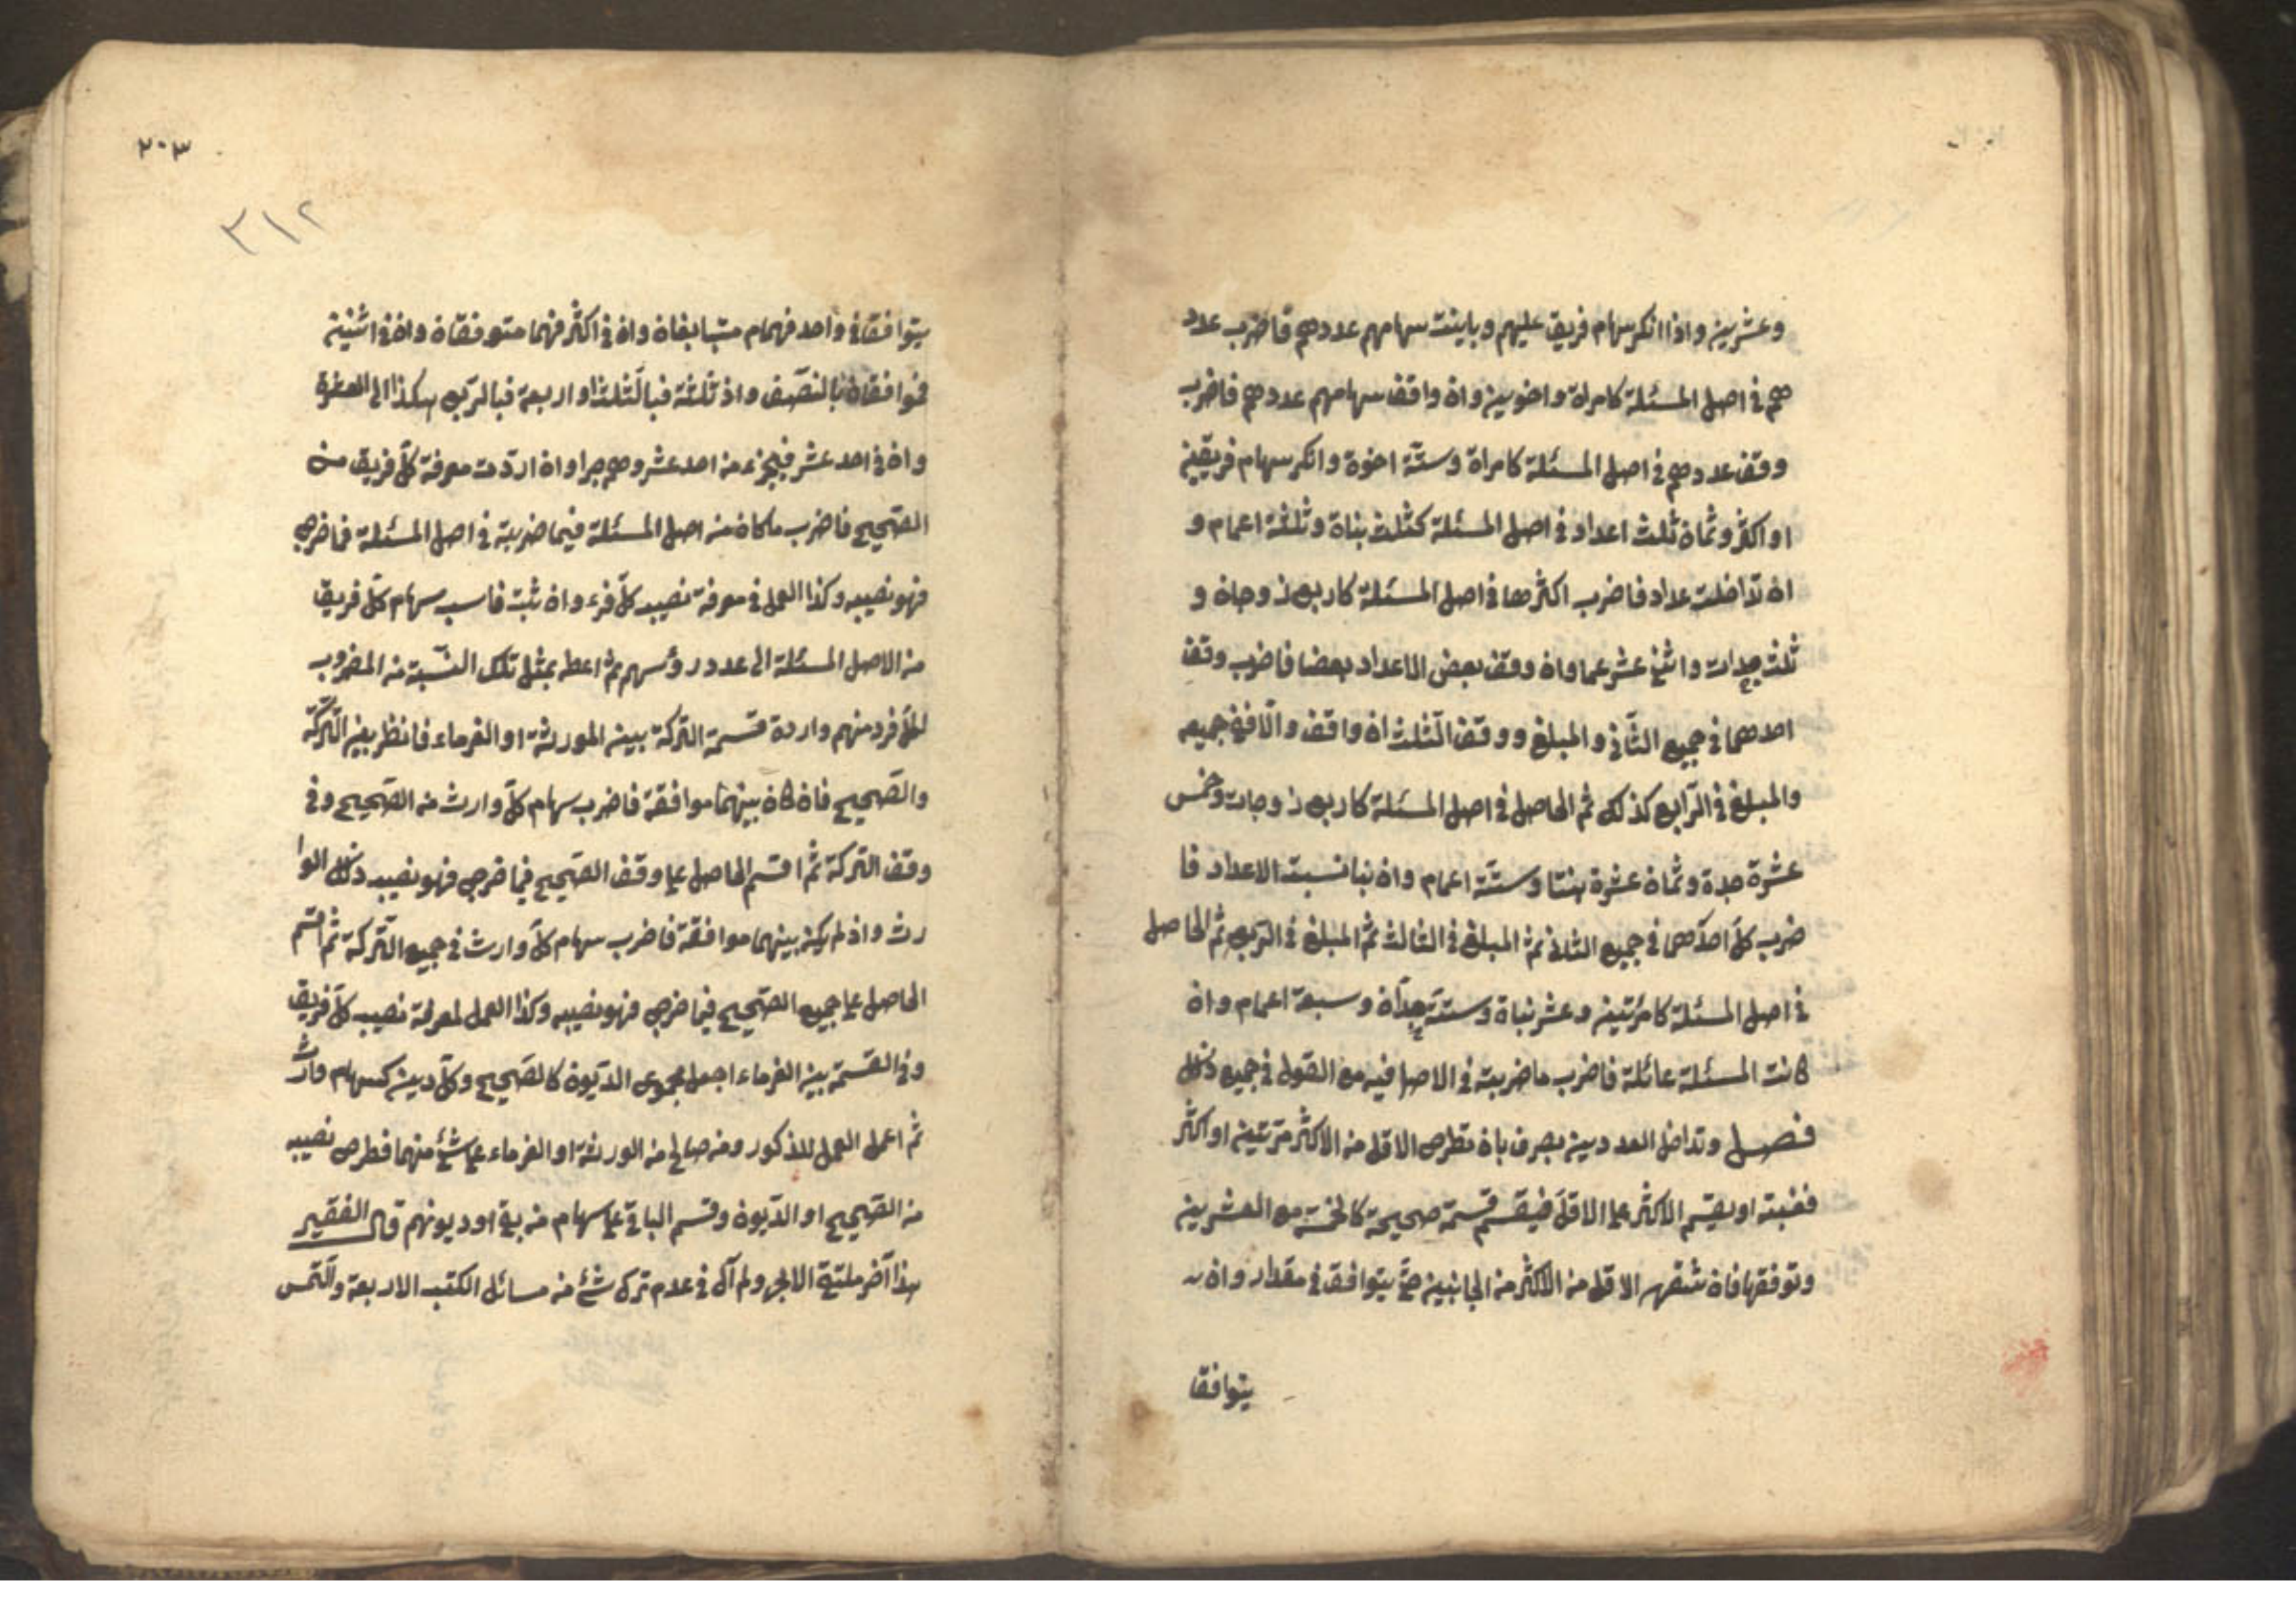 وعشرين واذا انكر سهام فريق عليهم وباينت سهامهم عددهم فاضرب عدد
هم في اصل المسئلة كامراة واخوين وان وافق سهامهم عددهم فاضرب
وفق عددهم في اصل المسئلة كامراة وستة اخوة وانكر سهام فريقين
او اكثر وثمان ثلث اعداد في اصل المسئلة كثلث بناة وثلثة اعمام و
ان تداخلت عداد فاضرب اكثرها في اصل المسئلة كاربع زوجاة و
ثلث جدات واثني عشر عما وان ووفق بعض الاعداد بعضا فاضرب وفق
احدهما في جميع الثاني والمبلغ ووفق الثلث ان وافق والا ففي جميعه
والمبلغ في الرابع كذلك ثم الحاصل في اصل المسئلة كاربع زوجات وخمس
عشرة جدة وثمان عشرة بنتا وستة اعمام وان الاعداد فا
ضرب كل احدهما في جميع الثاني ثم المبلغ في الثالث ثم المبلغ في الربع ثم الحاصل
في اصل المسئلة كامرئتين وعشر بناة وستة جدآة وسبعة اعمام وان
كانت المسئلة عائلة فاضرب ما ضربته في الاصل فيه مع العول في جميع ذلك
فصل وتداخل العددين يعرف بان تطرح الاقل من الاكثر مرتين او اكثر
فغبته او يقسم الاكثر على الاقل فيقسم قسمة صحيحة كالخمسة مع العشرين
وتوفقها فان تنقص الاقل من الاكثر من الجانبين حتى يتوافق في مقدار وان
يتوافقا
٢٠٣
٣١٢
يتوافقا في واحد فهمام متبايفان وان في اكثر فهما متوفقان وان في اثنين
فتوافقان بالنصف وان ثلثة فبالثلث او اربعة فبالربع هكذا الى العشرة
وان في احد عشر فبجزء من احد عشر وهم جرا وان اردت معرفة كل فريق من
الصحيح فاضرب ما كان من اصل المسئلة فيما ضربته في اصل المسئلة فما خرج
فهو نصيبه وكذا العمل في معرفة نصيب كل فرء وان شئت فاسب سهام كل فريق
من الاصل المسئلة الى عدد رؤسهم ثم اعط بمثل تلك النسبة من المضروب
لكل فرد منهم واردة قسمة التركة بين المورثة او الغرماء فانظر بين التركة
والصحيح فان كان بينهما موافقة فاضرب سهام كل وارث من الصحيح وفي
وفق التركة ثم اقسم الحاصل على وفق الصحيح فما خرج فهو نصيب ذلك الوا
رث واذ لم يكن بينهما موافقة فاضرب سهام كل وارث في جميع التركة ثم اقسم
الحاصل على جميع الصحيح فما خرج فهو نصيبه وكذا العمل لمعرفة نصيب كل فريق
وفي القسمة بين الغرماء اجعل مجموع الديون كالصحيح وكل دين كسهام وارث
ثم اعمل العمل المذكور ومن صالح من الورثة او الغرماء على شئ منهما فطرح نصيبه
من الصحيح او الديون وقسم الباقي على سهام من بقي او ديونهم قال الفقير
هذا آخر ملتقى الابحر ولم آل في عدم ترك شئ من مسائل الكتب الاربعة والتمس